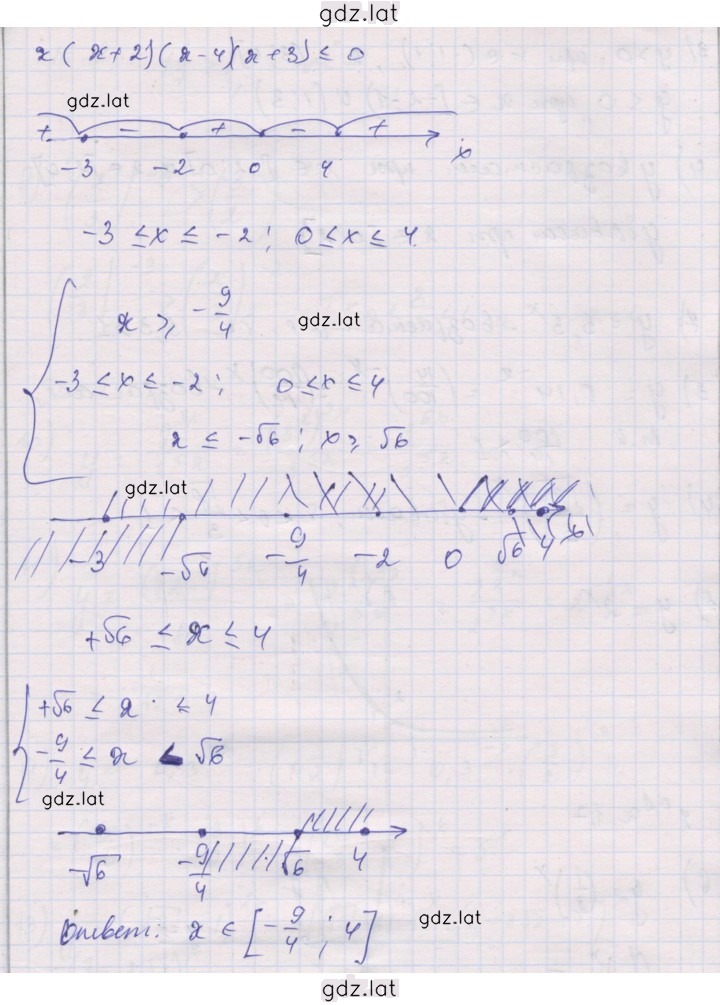 gdz.lat
x(x+2)(x-4)(x+3) ≤ 0
gdz.lat
+ - + - +
-3 -2 0 4 x
-3 ≤ x ≤ -2; 0 ≤ x ≤ 4
x ≥ -9/4
gdz.lat
-3 ≤ x ≤ -2; 0 ≤ x ≤ 4
x ≤ -√6; x ≥ √6
gdz.lat
-3 -√6 -9/4 -2 0 √6 4 x
+√6 ≤ x ≤ 4
+√6 ≤ x ≤ 4
-9/4 ≤ x < √6
gdz.lat
-√6 -9/4 √6 4
Ответ: x ∈ [-9/4; 4]
gdz.lat
gdz.lat